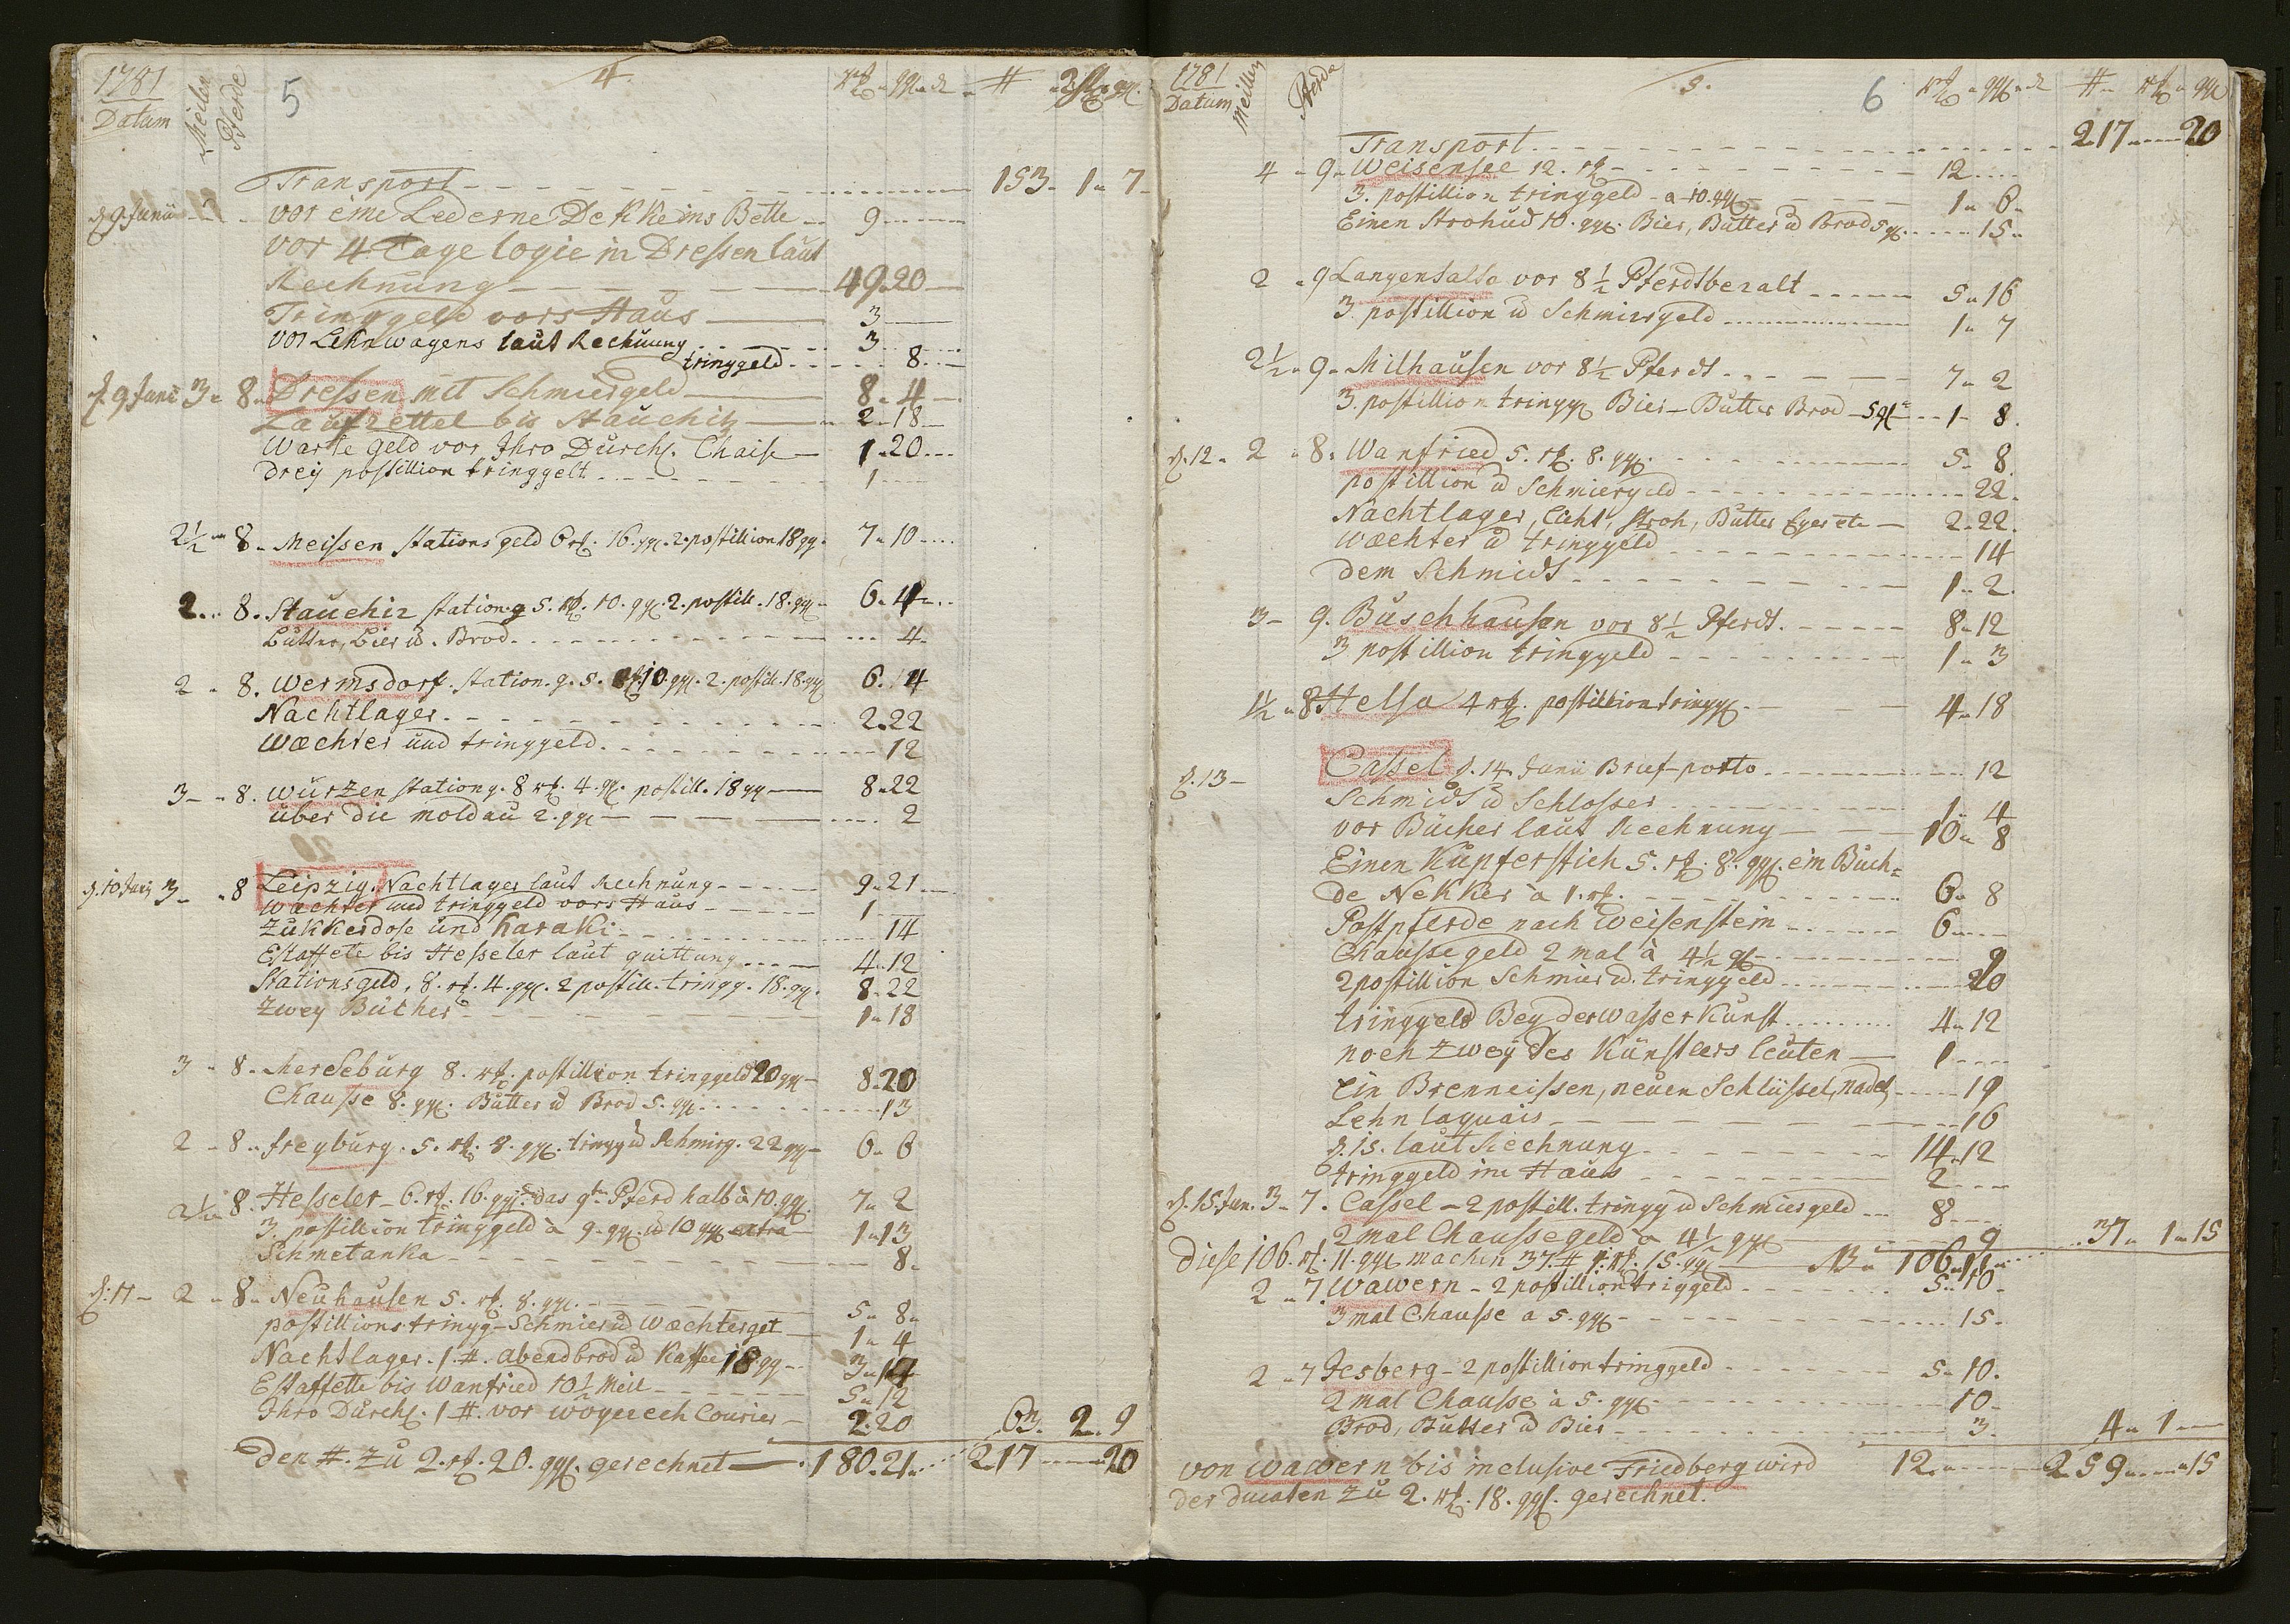 1781
Datum
Meilen
Pferde
5
4.
rt. gg. d.
# rt. gg.
Transport 153. 1. 7
d 9. Junii vor eine Lederne Dekke ins Bette 9
vor 4 Tage logie in Dressen laut
Rechnung 49. 20
Tringgeld vors Haus 3
vor Lehnwagens laut Rechnung 3
tringgeld 8
d. 9 Junii 3. 8. Dressen mit Schmiergeld 8. 4
Laufzettel bis Stauchitz 2. 18
Warte geld vor Ihro Durchl. Chaise 1. 20
drey postillion tringgelt 1
2½ 8. Meissen stations geld 6 rt. 16. gg. 2. postillion 18 gg. 7. 10
2. 8. Stauchiz station. g 5. rt. 10. gg. 2. postill. 18. gg 6. 4
Butter, Bier u. Brod 4
2. 8. Wermsdorf. station. g. 5. rt. 10. gg. 2. postill. 18. gg 6. 4
Nachtlager 2. 22
Wæchter und tringgeld 12
3. 8. Wurzen station g. 8 rt. 4. gg. postill. 18 gg 8. 22
über die moldau 2. gg 2
d. 10 Junii 3. 8 Leipzig. Nachtlager laut Rechnung 9. 21
Wæchter und tringgeld vors Haus 1
Zukkerdose und Karaki 14
Estaffete bis Hesseler laut quittung 4. 12
Stationsgeld, 8. rt. 4. gg. 2 postill. tringg. 18. gg. 8. 22
Zwey Bücher 1. 18
3. 8. Merseburg 8. rt. postillion tringgeld 20 gg 8. 20
Chausse 8. gg. Butter u Brod 5. gg 13
2. 8. freyburg. 5. rt. 8. gg. tringg u Schmirg. 22 gg 6. 6
2½ 8. Hesseler 6. rt. 16. gg. das 9te Pferd halb à 10. gg. 7. 2
3. postillion tringgeld à 9. gg. u 10 gg extra 1. 13
Schmetanka 8.
d. 11 2. 8. Neuhausen 5. rt. 8. gg. 5. 8
postillions tringg. Schmier u Wæchterget 1. 4
Nachtlager. 1. #. abendbrod u Kaffee 18. gg 3. 14
Estaffette bis Wanfried 10½ Meil 5. 12
Ihro Durchl. 1 #. vor Courier 2. 20 63. 2. 9
den #. zu 2. rt. 20. gg. gerechnet 180. 21. 217 20
1781
Datum
Meillen
Pferde
5.
6
rt. gg. d
# rt. gg
Transport 217 20
4. 9. Weisensee 12. rt. 12
3. postillion tringgeld a 10. gg 1. 6
Einen Strohud 10. gg. Bier, Butter u Brod 5 g. 15
2. 9 Langensalsa vor 8½ Pferdt bezalt 5. 16
3. postillion u Schmiergeld 1. 7
2½. 9. Milhausen vor 8½ Pferdt 7. 2
3. postillion tringg Bier Butter Brod 5 g 1. 8.
d. 12. 2. 8. Wanfried 5. rt. 8. gg. 5. 8.
postillion u Schmiergeld 22.
Nachtlager, licht, stroh, Butter Eger etc 2. 22.
Wæchter u tringgeld 14
dem Schmidt 1. 2.
3. 9. Buschhausen vor 8½ Pferdt. 8. 12
3 postillion tringgeld 1. 3
1½. 8 Helsa 4 rt. postillion tringg. 4. 18
d. 13 Cassel d. 14. Junii Brief-porto 12
Schmidt u Schlosser 1. 4
vor Bücher laut Rechnung 10. 8
Einen Kupferstich 5. rt. 8. gg. ein Buch=
de Nekker à 1. rt. 6. 8
Postpferde nach Weisenstein 6
Chausse geld 2 mal à 4½ g 9
2 postillion Schmier u. tringgeld 20
tringgeld Bey der wasser Kunst 4. 12
noch zwey des Künstlers leuten 1
ein Brenneissen, neuen Schlüssel, nadel 19
Lehn laquais 16
d. 15. laut Rechnung 14. 12
tringgeld im Haus 2
d. 15. Jun. 3. 7. Cassel 2 postill. tringg u Schmiergeld 8
2 mal Chausse geld à 4½ gg 9 37. 1. 15
diese 106. rt. 11. gg machen 37. # 1. rt. 15. gg 106. 11
2. 7. Wawern 2 postillion triggeld 5. 10
3 mal Chausse a 5. gg 15
2. 7 Jesberg 2 postillion tringgeld 5. 10.
2 mal Chausse à 5. gg. 10
Brod, Butter u Bier 3. 4. 1
von Wawern bis inclusive Friedberg wird 12. 259 15
der ducaten zu 2. rt. 18. gg. gerechnet.